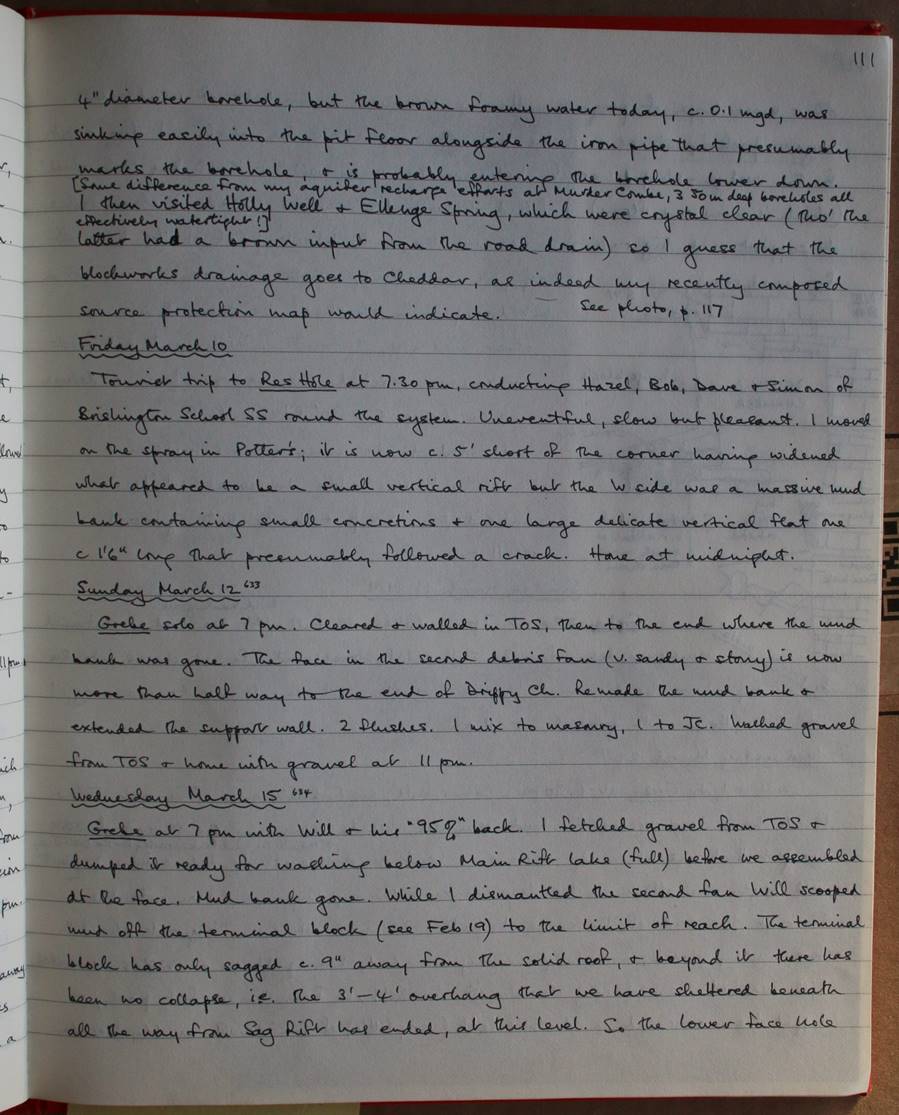 111
4" diameter borehole, but the brown foamy water today, c. 0.1 mgd, was
sinking easily into the pit floor alongside the iron pipe that presumably
marks the borehole, & is probably entering the borehole lower down.
[Some difference from my aquifer recharge efforts at Murder Combe, 3 50m deep boreholes all
effectively watertight!]
I then visited Holly Well & Ellenge Spring, which were crystal clear (tho' the
latter had a brown input from the road drain) so I guess that the
blockworks drainage goes to Cheddar, as indeed my recently composed
source protection map would indicate. See photo, p. 117
Friday March 10
Tourist trip to Res Hole at 7.30 pm, conducting Hazel, Bob, Dave & Simon of
Brislington School SS round the system. Uneventful, slow but pleasant. I moved
on the spray in Potter's; it is now c. 5' short of the corner having widened
what appeared to be a small vertical rift but the W side was a massive mud
bank containing small concretions & one large delicate vertical flat one
c 1'6" long that presumably followed a crack. Home at midnight.
Sunday March 12 633
Grebe solo at 7 pm. Cleared & walled in TOS, then to the end where the mud
bank was gone. The face in the second debris fan (v. sandy & stony) is now
more than half way to the end of Drippy Ch. Remade the mud bank &
extended the support wall. 2 flushes. 1 mix to masonry, 1 to JC. Washed gravel
from TOS & home with gravel at 11 pm.
Wednesday March 15 634
Grebe at 7 pm with Will & his "95%" back. I fetched gravel from TOS &
dumped it ready for washing below Main Rift lake (full) before we assembled
at the face. Mud bank gone. While I dismantled the second fan Will scooped
mud off the terminal block (see Feb 19) to the limit of reach. The terminal
block has only sagged c. 9" away from the solid roof, & beyond it there has
been no collapse, i.e. the 3'-4' overhang that we have sheltered beneath
all the way from Sag Rift has ended, at this level. So the lower face hole